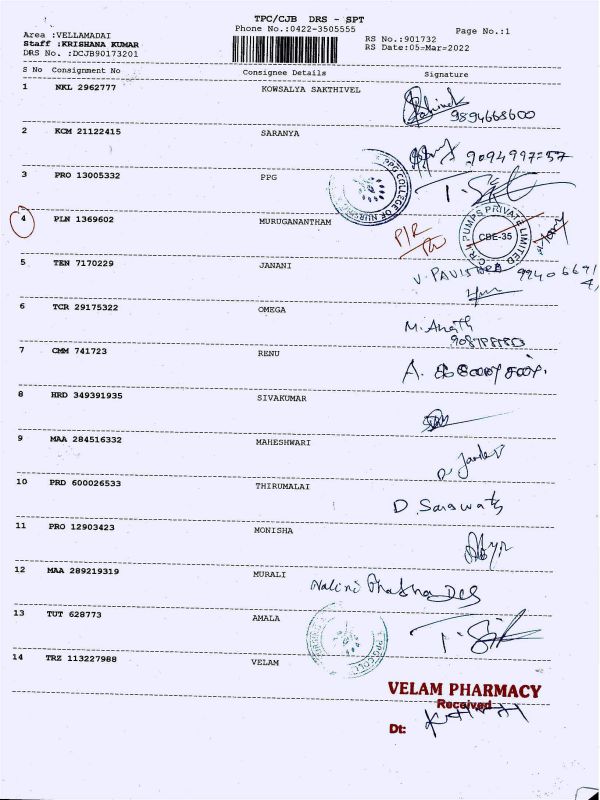 TPC/CJB DRS - SPT
Area :VELLAMADAI Phone No.:0422-3505555 Page No.:1
Staff :KRISHANA KUMAR RS No.:901732
DRS No. :DCJB90173201 RS Date:05-Mar-2022
S No Consignment No Consignee Details Signature
1 NKL 2962777 KOWSALYA SAKTHIVEL
9894668600
2 KCM 21122415 SARANYA
3 PRO 13005332 PPG
PPG COLLEGE OF NURSING
4 PLN 1369602 MURUGANANTHAM
C.R.I. PUMPS PRIVATE LIMITED
CBE-35
5 TEN 7170229 JANANI
6 TCR 29175322 OMEGA
7 CMM 741723 RENU
A.
8 HRD 349391935 SIVAKUMAR
9 MAA 284516332 MAHESHWARI
10 PRD 600026533 THIRUMALAI
D. Saraswathi
11 PRO 12903423 MONISHA
12 MAA 289219319 MURALI
Nalini Prabha Das
13 TUT 628773 AMALA
14 TRZ 113227988 VELAM
VELAM PHARMACY
Received
Dt: